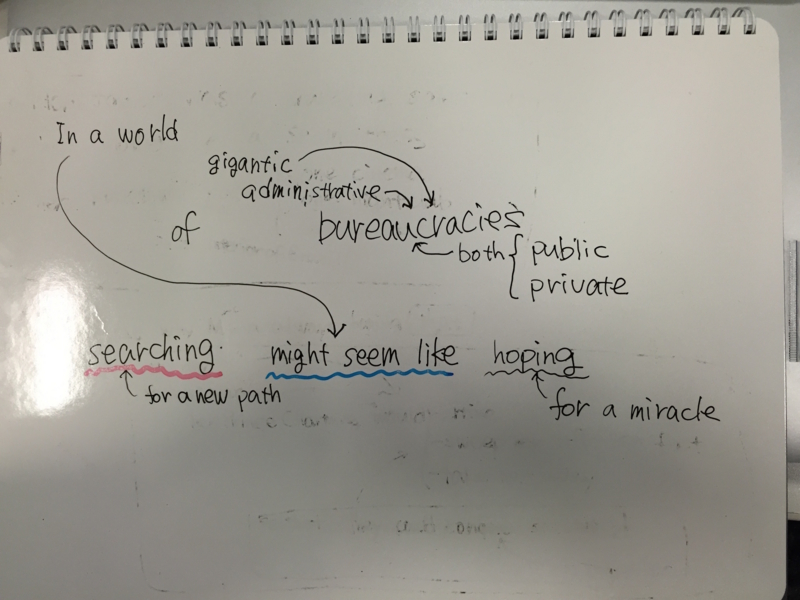 In a world
gigantic
administrative
of bureaucracies
both { public
private
searching might seem like hoping
for a new path
for a miracle